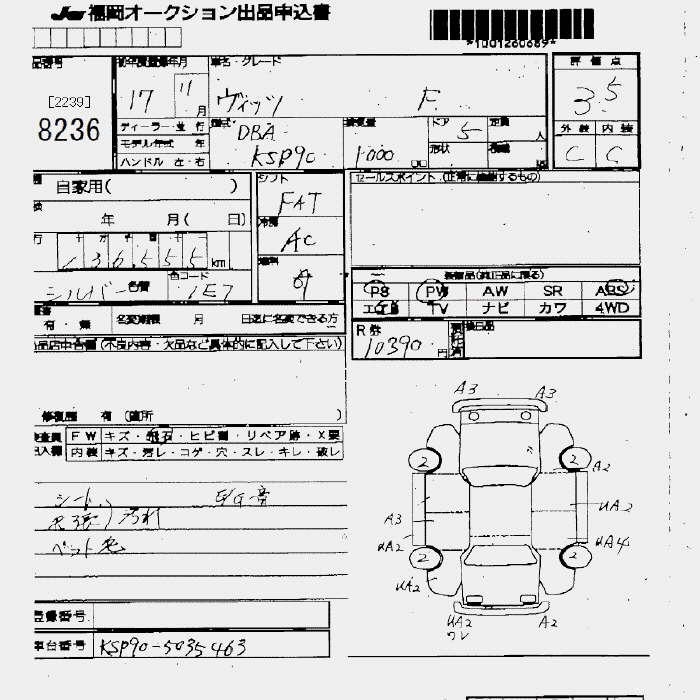 JU 福岡オークション出品申込書
*1001260689*
初年度登録年月
車名・グレード
評価点
[2239]
8236
17
11
月
ヴィッツ
F
3.5
ディーラー・並行
モデル年式 年
ハンドル 左・右
型式
DBA
KSP90
排気量
1000
ドア
5
形状
定員
人
外装
内装
C
C
自家用( )
シフト
FAT
セールスポイント (正常に機能するもの)
年 月( 日)
冷房
AC
136555 km
燃料
シルバー
色替
色コード
1E7
装備品(純正品に限る)
PS
PW
AW
SR
ABS
エアB
TV
ナビ
カワ
4WD
有・無
名変期限 月 日迄に名変できる方
R券
10390 円
後日品
出品店申告欄 (不良内容・欠品など具体的に記入して下さい)
修復歴 有 (箇所 )
検査員
記入欄
FW
キズ・飛石・ヒビ割・リペア跡・X要
内装
キズ・汚レ・コゲ・穴・スレ・キレ・破レ
シート
汚れ
E/G音
A3
A3
2
2
A2
A3
UA2
UA2
UA4
2
2
UA2
UA2
ワレ
A2
登録番号
車台番号
KSP90-5035463